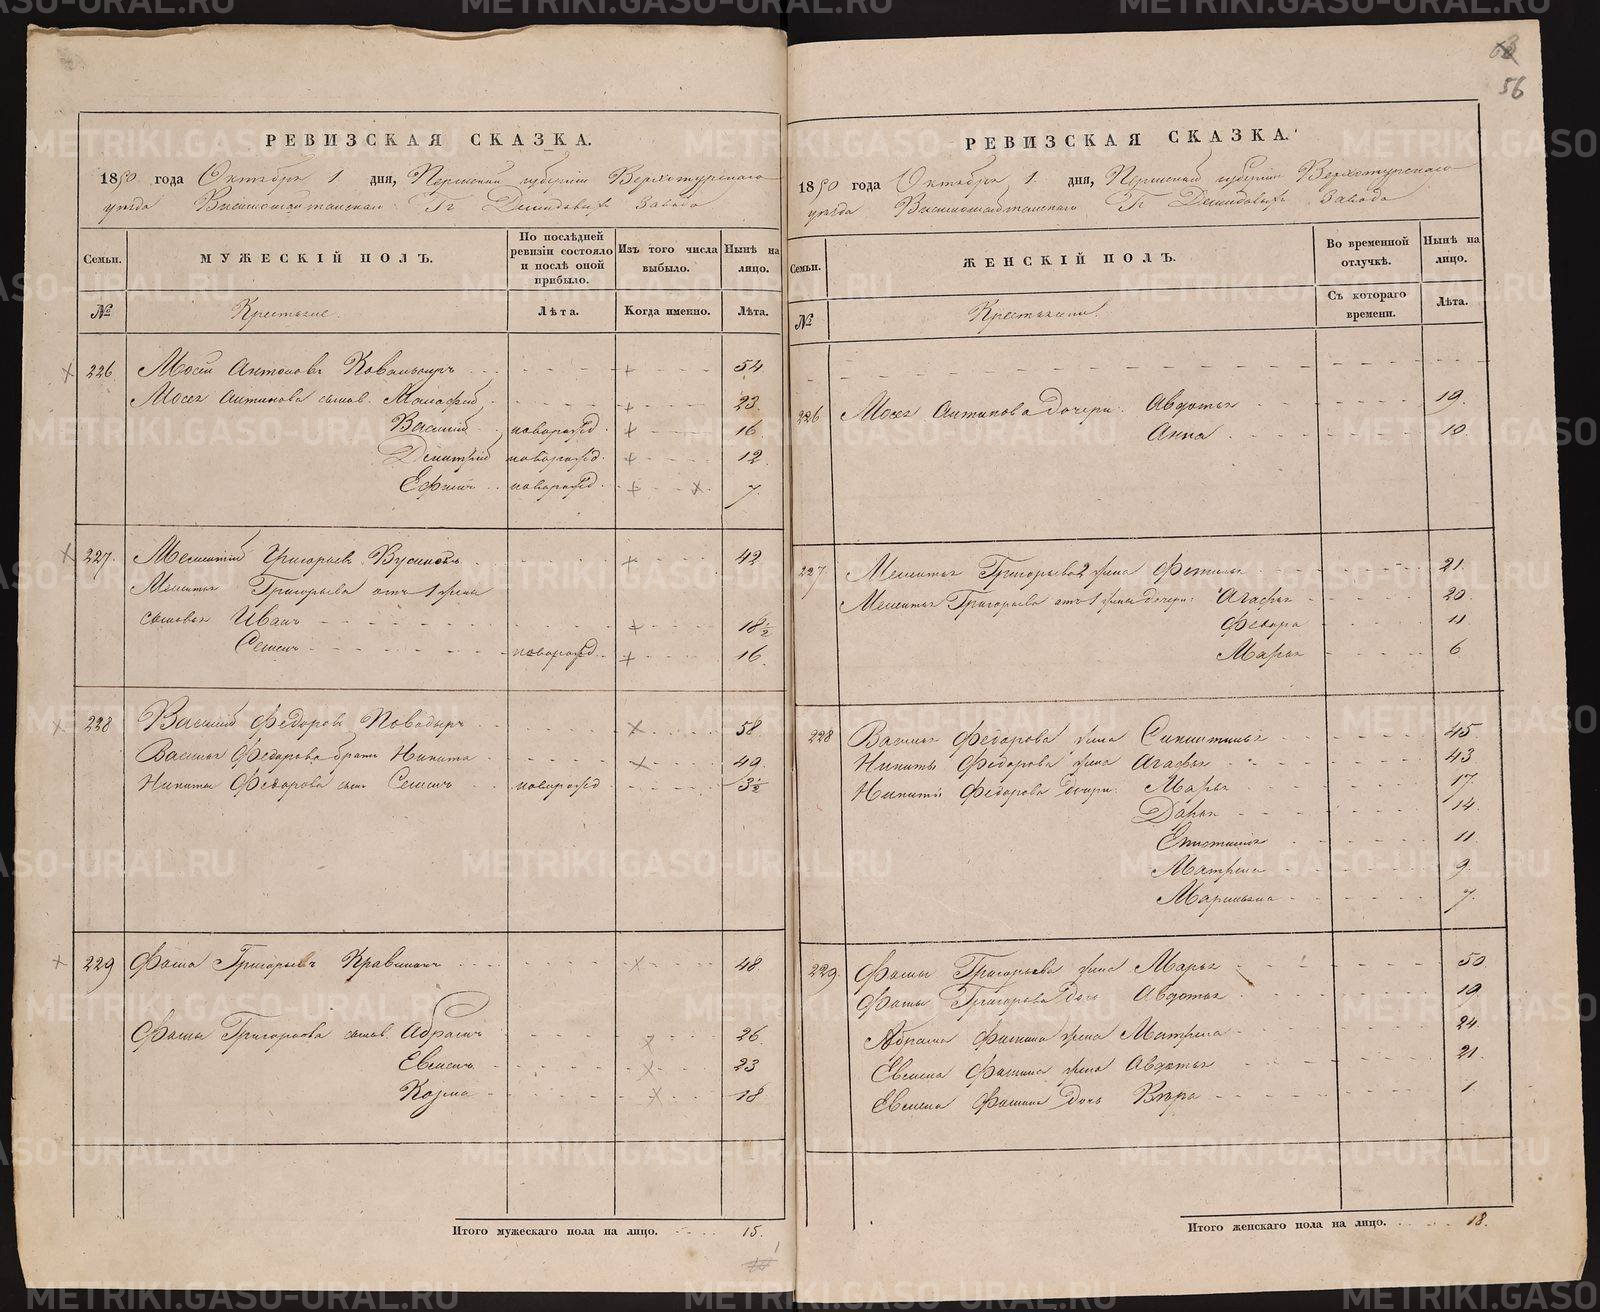 РЕВИЗСКАЯ СКАЗКА.
1850 года Октября 1 дня, Пермской губернии Верхотурского
уезда Висимошайтанского Гг Демидовых Завода
Семьи.
МУЖЕСКІЙ ПОЛЪ.
По послѣдней ревизіи состояло и послѣ оной прибыло.
Изъ того числа выбыло.
Нынѣ на лицо.
№
Крестьяне.
Лѣта.
Когда именно.
Лѣта.
226 Мосей Антонов 54
Мосея Антипова сынов. 23
Василий новорожд. 16
Дмитрий новорожд. 12
Ефим новорожд. 7
227. Мелентий Григорьев 42
Мелентья Григорьева от 1 жены
сыновья Иван 18½
Семен новорожд. 16
228 Василий Федоров Поводырь 58
Василья Федорова брат Никита 49
Никиты Федорова сын Семен новорожд 3½
229 Фома Григорьев Кравченко 48
Фомы Григорьева сынов. Абрам 26
Евмен 23
Козма 18
Итого мужескаго пола на лицо. 15.
56
РЕВИЗСКАЯ СКАЗКА.
1850 года Октября 1 дня, Пермской губернии Верхотурского
уезда Висимошайтанского Гг Демидовых Завода
Семьи.
ЖЕНСКІЙ ПОЛЪ.
Во временной отлучкѣ.
Нынѣ на лицо.
№
Крестьянки.
Съ котораго времени.
Лѣта.
226 Мосея Антипова дочери: Авдотья 19.
Анна 10
227 Мелентья Григорьева 2 жена Фотинья 21
Мелентья Григорьева от 1 жены дочери: Агафья 20
Февра 11
Марья 6
228 Василья Федорова жена 45
Никиты Федорова жена Агафья 43
Никиты Федорова дочери: Марья 17
Дарья 14
11
Матрена 9
Марьяна 7.
229. Фомы Григорьева жена Марья 50
Фомы Григорьева дочь Авдотья 19
Абрама Фомина жена Матрена 24
Евмена Фомина жена Авдотья 21
Евмена Фомина дочь Вѣра 1
Итого женскаго пола на лицо. 18.
METRIKI.GASO-URAL.RU